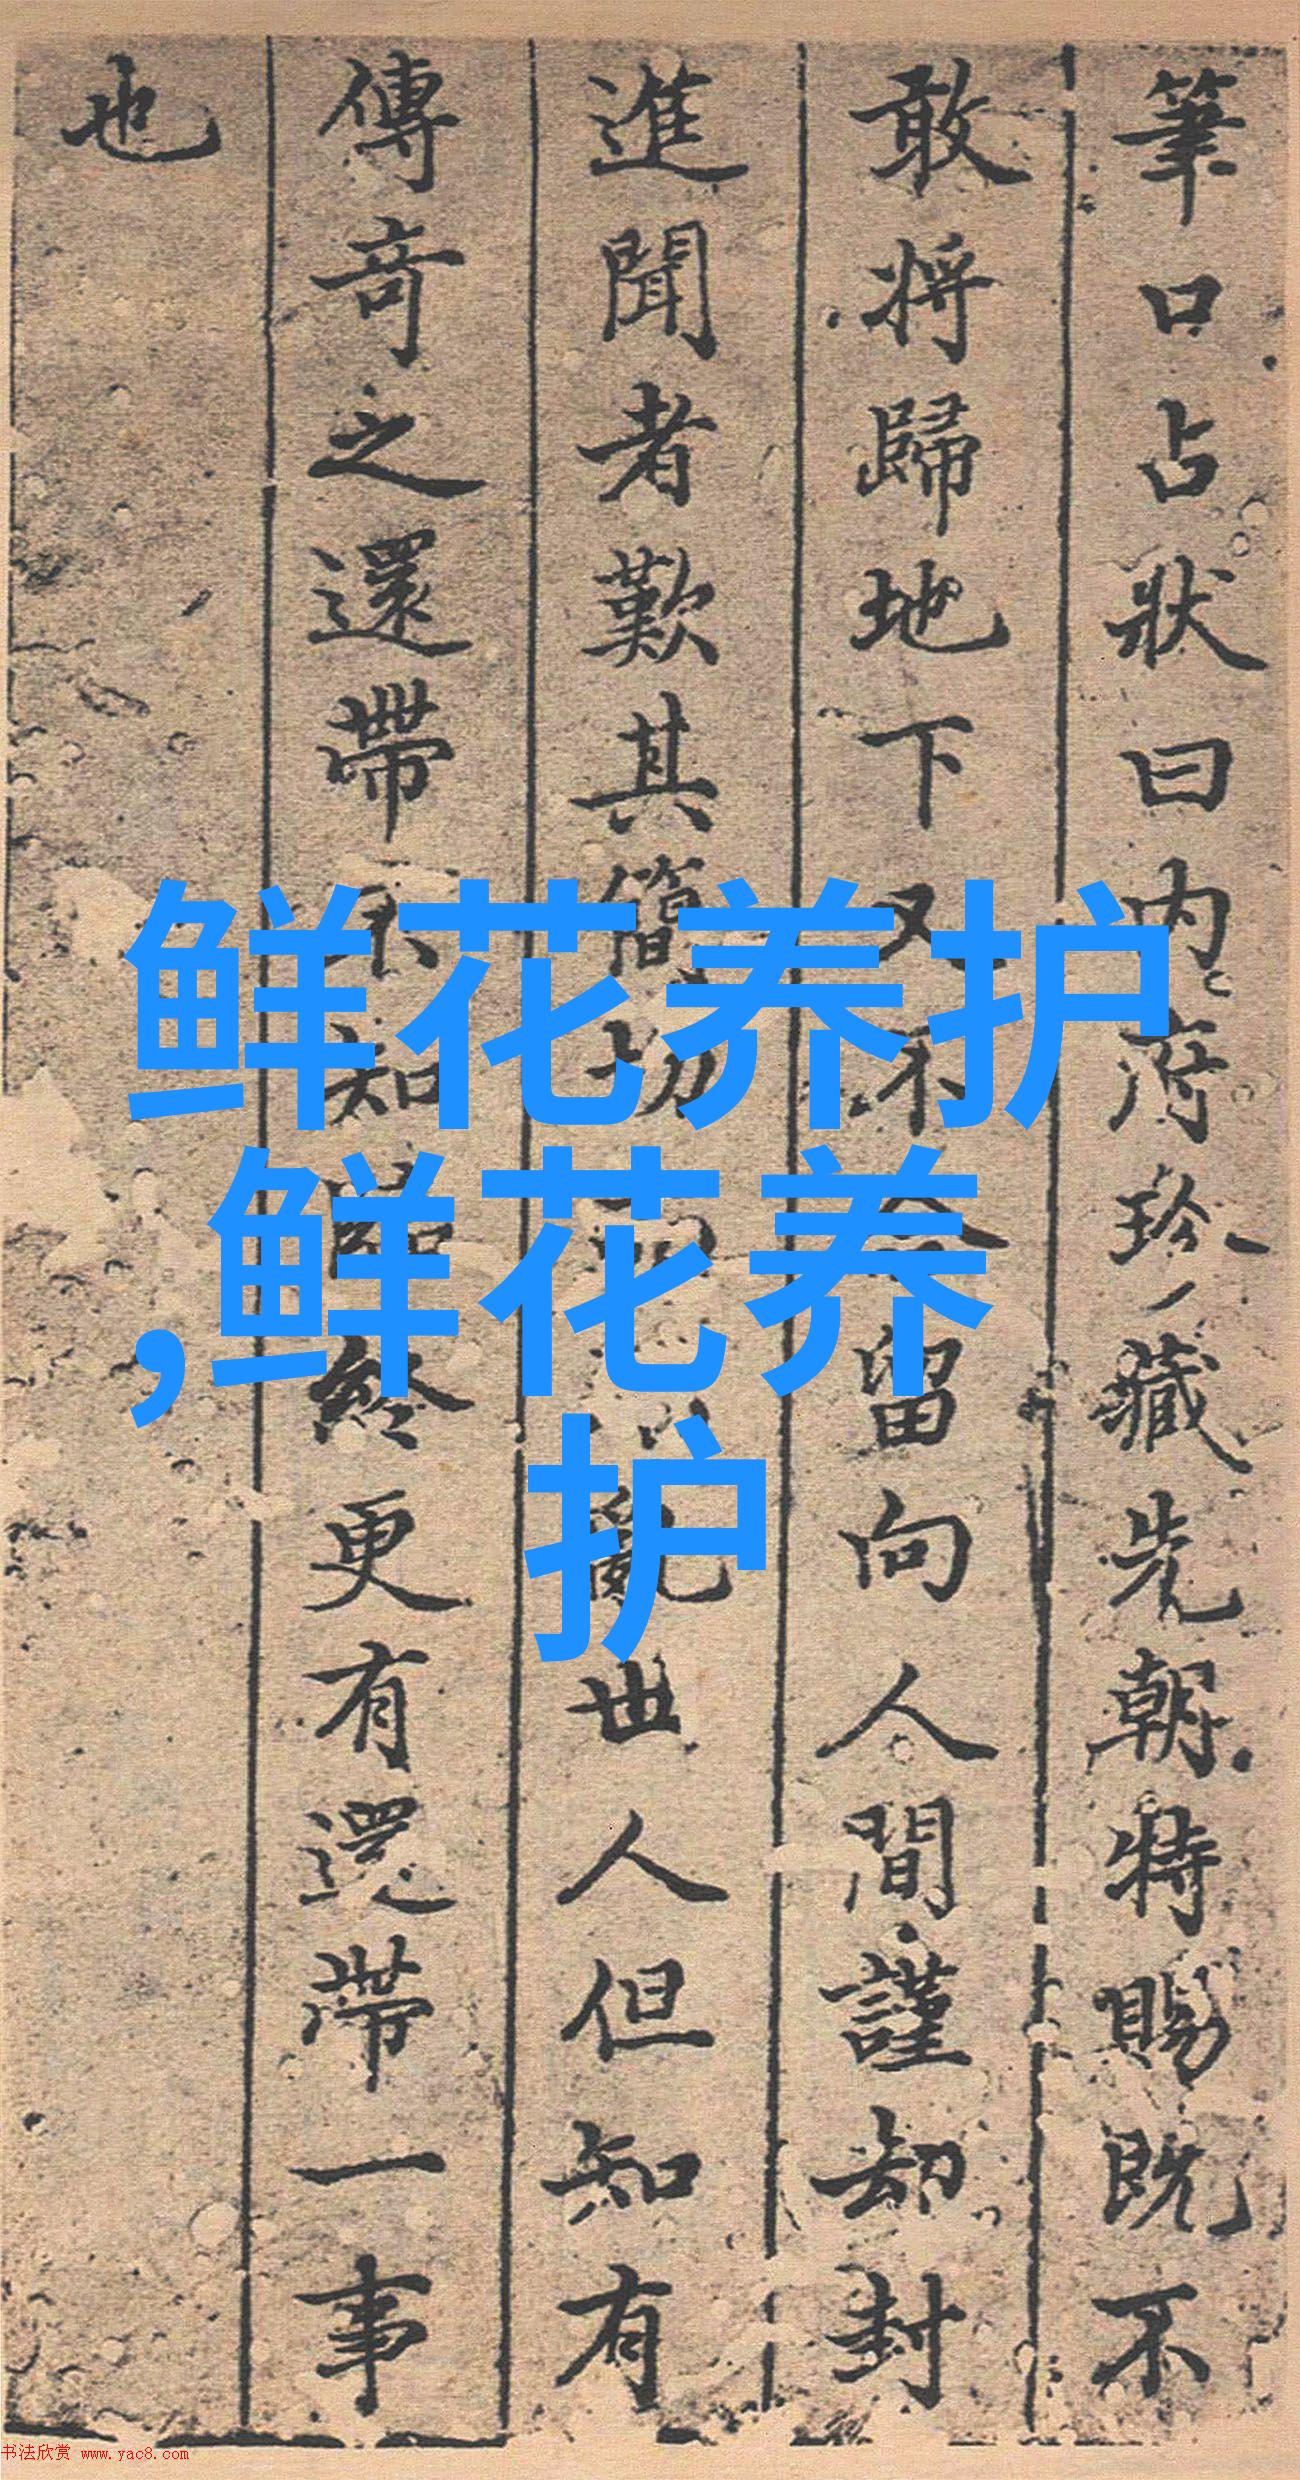 筆口占狀曰内府珍藏先朝特賜既不
敢将歸地下又不留向人間謹却封
進聞者歎其簡切世人但知有
傳奇之還帶不知臨終更有還帶一事
也
鲜花养护
,鲜花养
护
书法欣赏 www.yac8.com